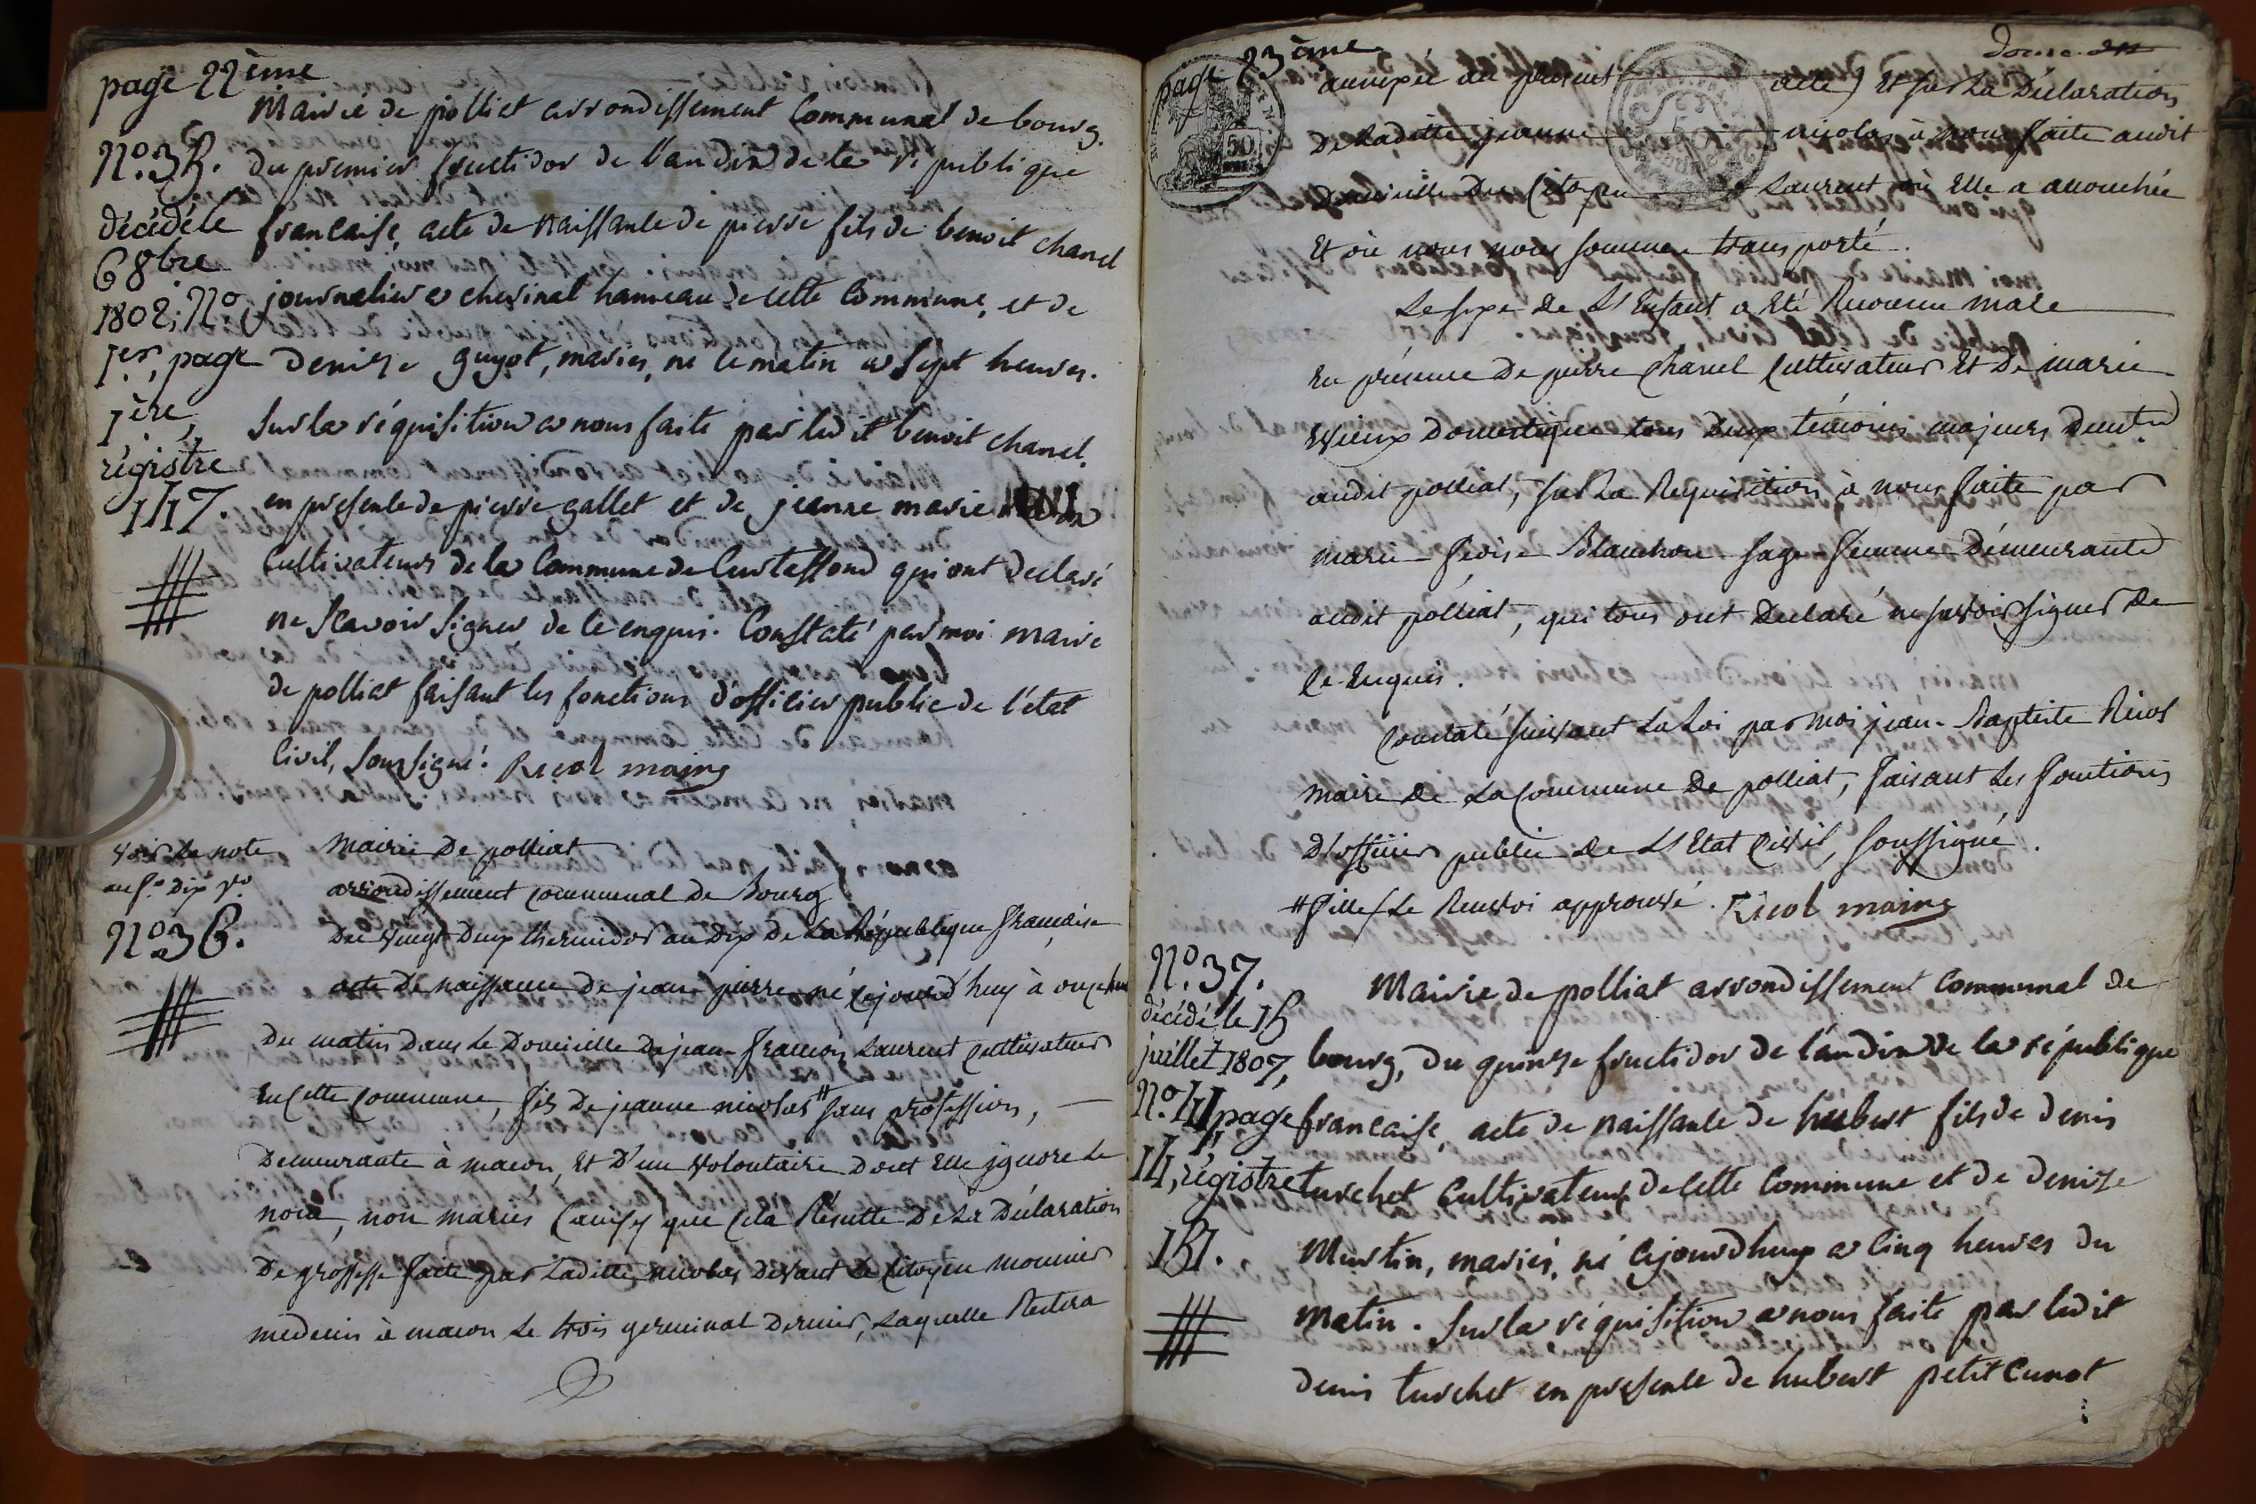 page 22ème
Mairie de polliat arrondissement Communal de bourg.
N.º 35. du premier fructidor de l'an dix de la republique
décédé le francaise, acte de naissance de pierre fils de benoit chanel
6 8bre
1802, Nº journalier a chesinal hameau de cette Commune, et de
1er, page denise guyot, mariés, né ce matin a sept heures.
1ère, Sur la réquisition a nous faite par ledit benoit chanel.
régistre
147. en presence de pierre gallet et de jeanne marie
Cultivateurs de la Commune de Curtafond qui ont declaré
ne scavoir signer de ce enquis. Constaté par moi maire
de polliat faisant les fonctions d'officier public de l'état
Civil, soussigné. Ricol maire
voir la note
au fº dix vº
Mairie De polliat
arrondissement communal de Bourg
Nº 36. Du vingt Deux thermidor an dix De La République française
acte De naissance De jean pierre né cejourd'huy à onze heures
Du matin Dans Le Domicille De jean françois Laurent cultivateur
En Cette Commune, fils De jeanne nicolas # sans profession,
Demeurante à macon, Et D'un volontaire Dont Elle jgnore Le
nom, non mariés (ainsy que Cela Résulte De La Déclaration
De grossesse faite par Laditte nicolas Devant Le Citoyen monnier
medecin à macon Le trois germinal Dernier, Laquelle Restera
page 23ème
annexée au present acte) Et sur La Déclaration
De Laditte jeanne nicolas à nous faite audit
Domicille Du Citoyen Laurent où Elle a accouchée
Et où nous nous sommes transporté.
Le sexe De L'Enfant a Eté Reconnu male
En présence De pierre Chanel Cultivateur Et De marie
vieux Domestique tous Deux témoins majeurs Demt
audit polliat, sur La Requisition à nous faite par
marie Blanchon sage femme Demeurante
audit polliat, qui tous ont Declaré ne savoir signer De
Ce Enquis.
Constaté suivant La Loi par Moi jean-Baptiste Ricol
maire De La Commune De polliat, faisant Les fonctions
D'officier public De L'Etat Civil, soussigné.
# fille / Le Renvoi approuvé. Ricol maire
Nº 37. Mairie de polliat arrondissement Communal de
décédé le 15
juillet 1807, bourg, du quinze fructidor de l'an dix de la république
Nº 41, page francaise, acte de naissance de hubert fils de denis
14, régistre turchet Cultivateur de cette Commune et de denise
151. Murtin, mariés, né cejourdhuy a Cinq heures du
matin. Sur la réquisition a nous faite par ledit
denis turchet en presence de hubert petit Cunot